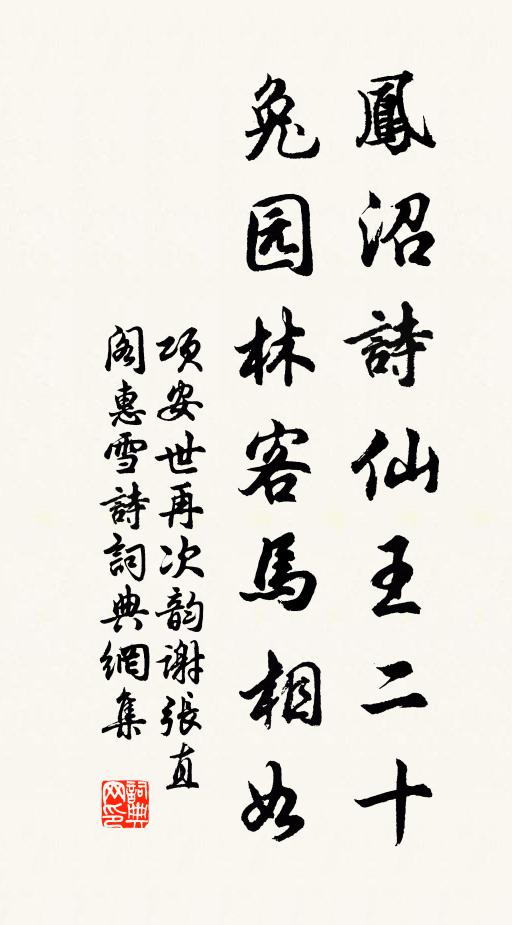 鳳沼詩仙王二十
兔园林客馬相如
项安世再次韵谢張直
阁惠雪詩詞典網集
詞典网印